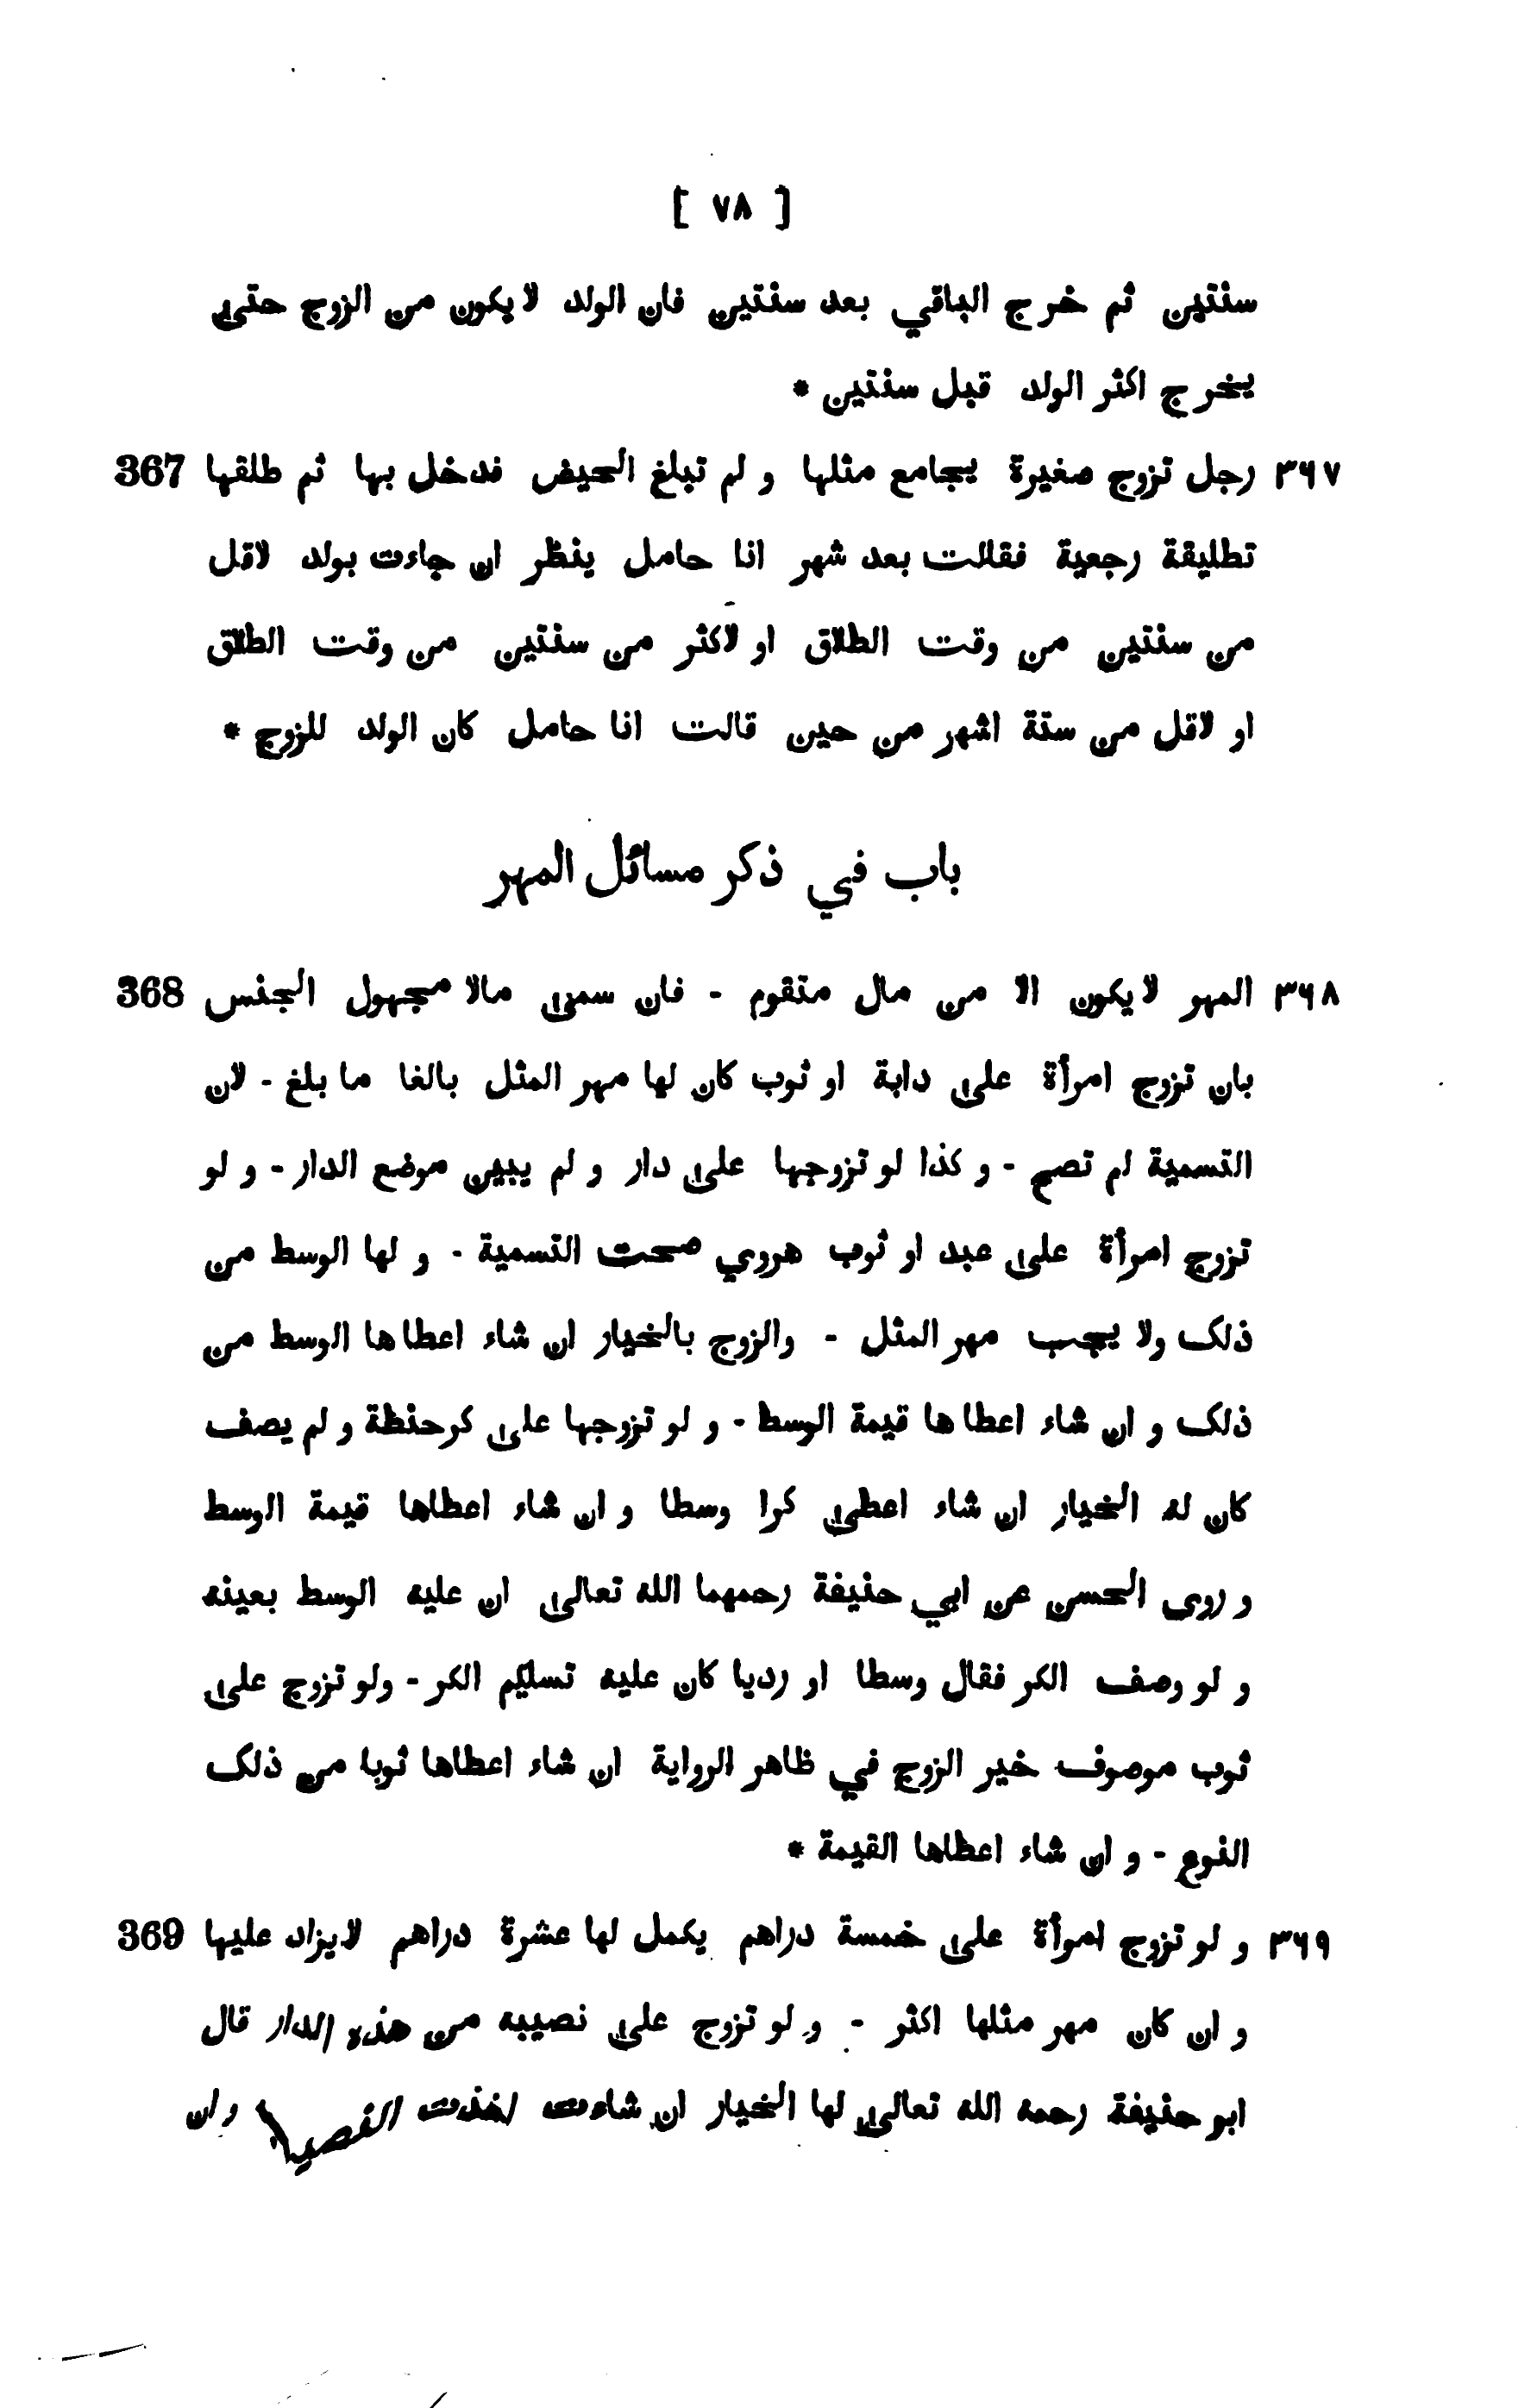 [ ٧٨ ]
سنتين ثم خرج الباقي بعد سنتين فان الولد لايكون من الزوج حتى
يخرج اكثر الولد قبل سنتين *
٣٦٧ رجل تزوج صغيرة يجامع مثلها و لم تبلغ الحيض فدخل بها ثم طلقها 367
تطليقة رجعية فقالت بعد شهر انا حامل ينظر ان جاءت بولد لاقل
من سنتين من وقت الطلاق او لاكثر من سنتين من وقت الطلاق
او لاقل من ستة اشهر من حين قالت انا حامل كان الولد للزوج *
باب في ذكر مسائل المهر
٣٦٨ المهر لايكون الا من مال متقوم - فان سمى مالا مجهول الجنس 368
بان تزوج امرأة على دابة او ثوب كان لها مهر المثل بالغا ما بلغ - لان
التسمية لم تصح - و كذا لو تزوجها على دار و لم يبين موضع الدار - و لو
تزوج امرأة على عبد او ثوب هروي صحت التسمية - و لها الوسط من
ذلك ولا يجب مهر المثل - والزوج بالخيار ان شاء اعطاها الوسط من
ذلك و ان شاء اعطاها قيمة الوسط - و لو تزوجها على كر حنطة و لم يصف
كان له الخيار ان شاء اعطى كرا وسطا و ان شاء اعطاها قيمة الوسط
و روى الحسن عن ابي حنيفة رحمهما الله تعالى ان عليه الوسط بعينه
و لو وصف الكر فقال وسطا او رديا كان عليه تسليم الكر - ولو تزوج على
ثوب موصوف خير الزوج في ظاهر الرواية ان شاء اعطاها ثوبا من ذلك
النوع - و ان شاء اعطاها القيمة *
٣٦٩ و لو تزوج امرأة على خمسة دراهم يكمل لها عشرة دراهم لايزاد عليها 369
و ان كان مهر مثلها اكثر - و لو تزوج على نصيبه من هذه الدار قال
ابو حنيفة رحمه الله تعالى لها الخيار ان شاءت اخذت النصيب و ان